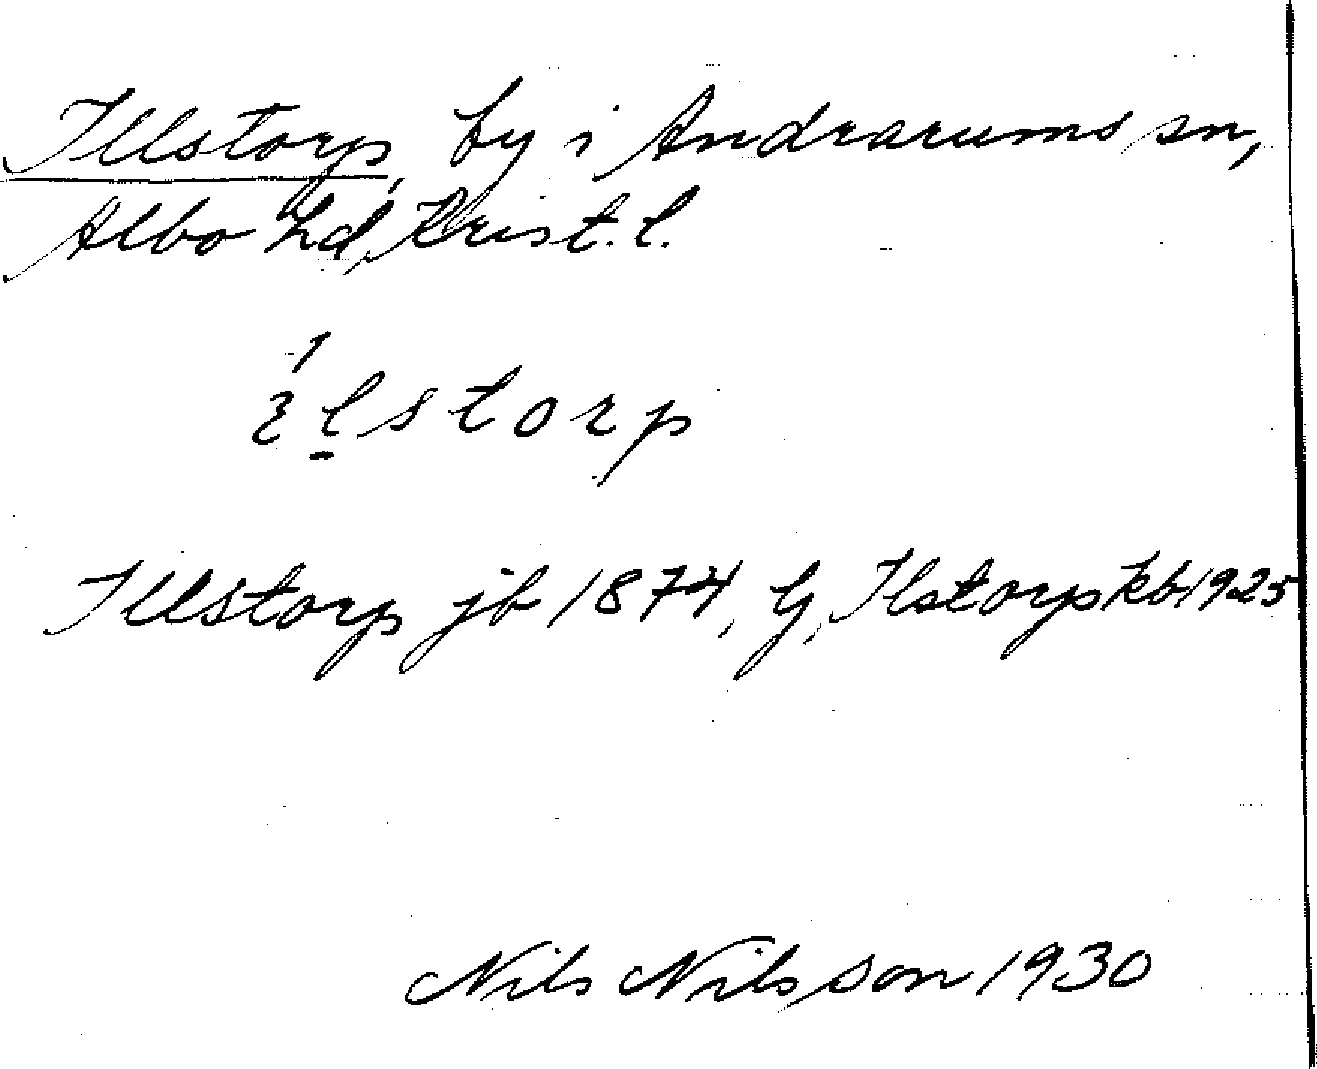 Illstorp, by i Andrarums sn,
Albo hd, Krist. l.
ɛ́l̠storp
Illstorp jb 1874, Ilstorp kb 1925
Nils Nilsson 1930